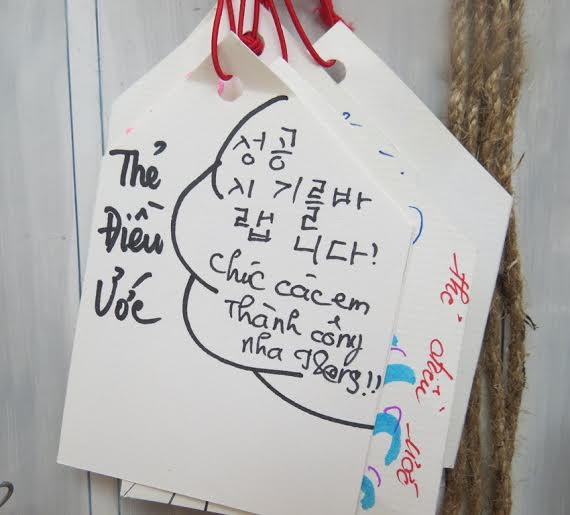 Thẻ
Điều
Ước
성공
시 기를바
랍
니다!
chúc các em
Thành công
nha 98ers!!
thẻ điều ước